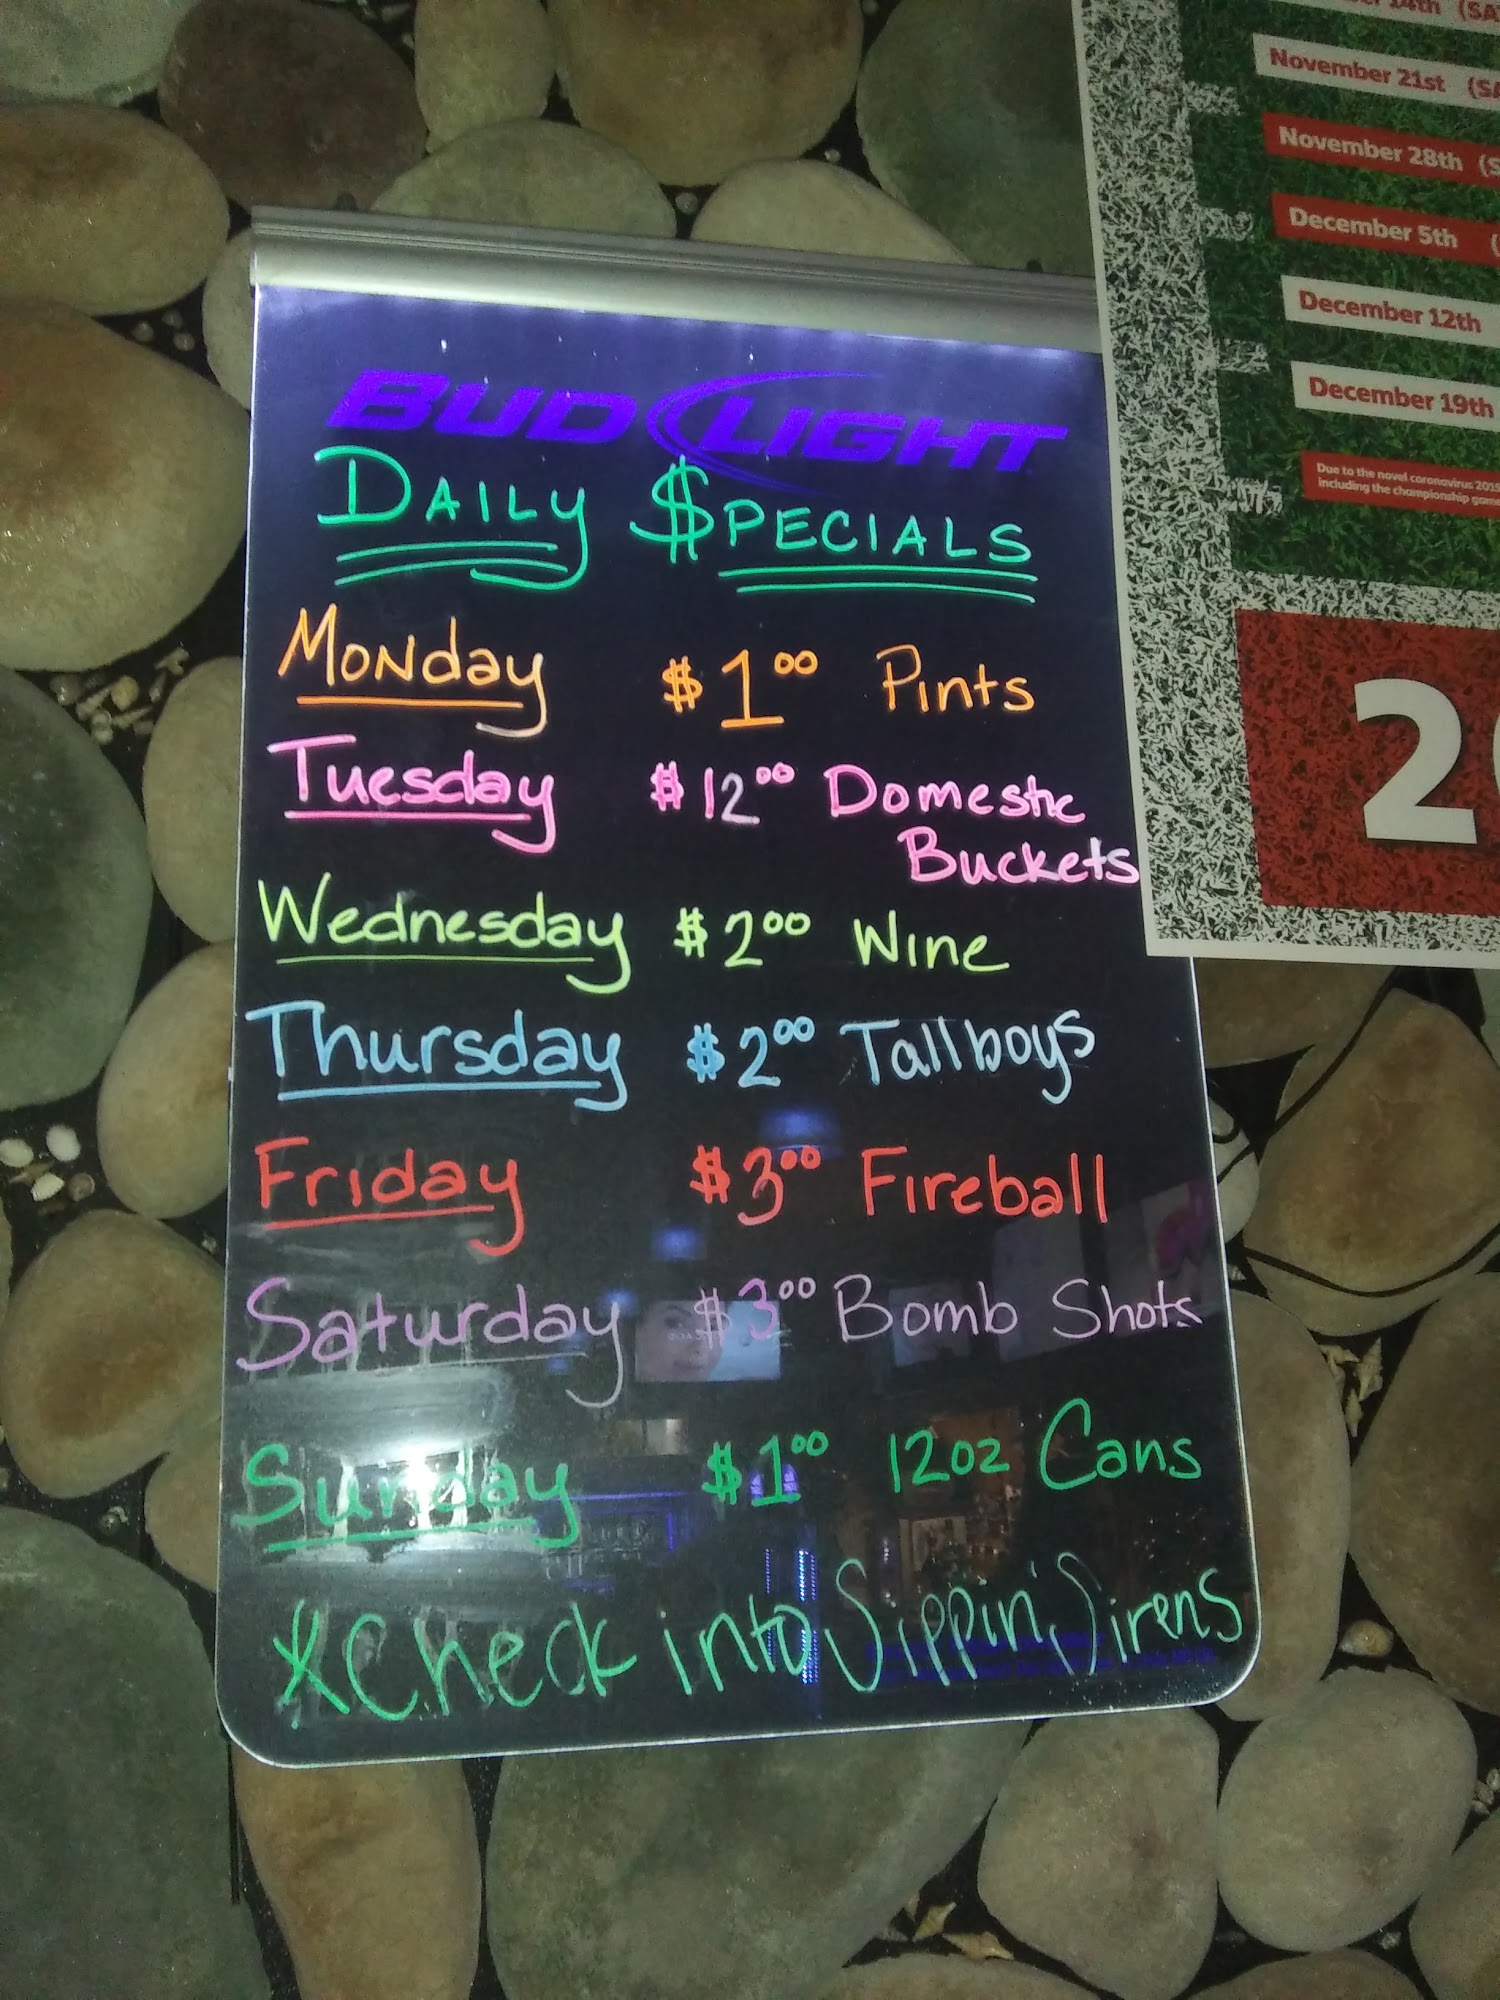 BUD LIGHT
DAILY $PECIALS
Monday $1⁰⁰ Pints
Tuesday $12⁰⁰ Domestic
Buckets
Wednesday $2⁰⁰ Wine
Thursday $2⁰⁰ Tallboys
Friday $3⁰⁰ Fireball
Saturday $3⁰⁰ Bomb Shots
Sunday $1⁰⁰ 12oz Cans
*Check into Sippin' Sirens
14th (SA
November 21st (SA
November 28th (S
December 5th (
December 12th
December 19th
Due to the novel coronavirus 2019
including the championship game
2